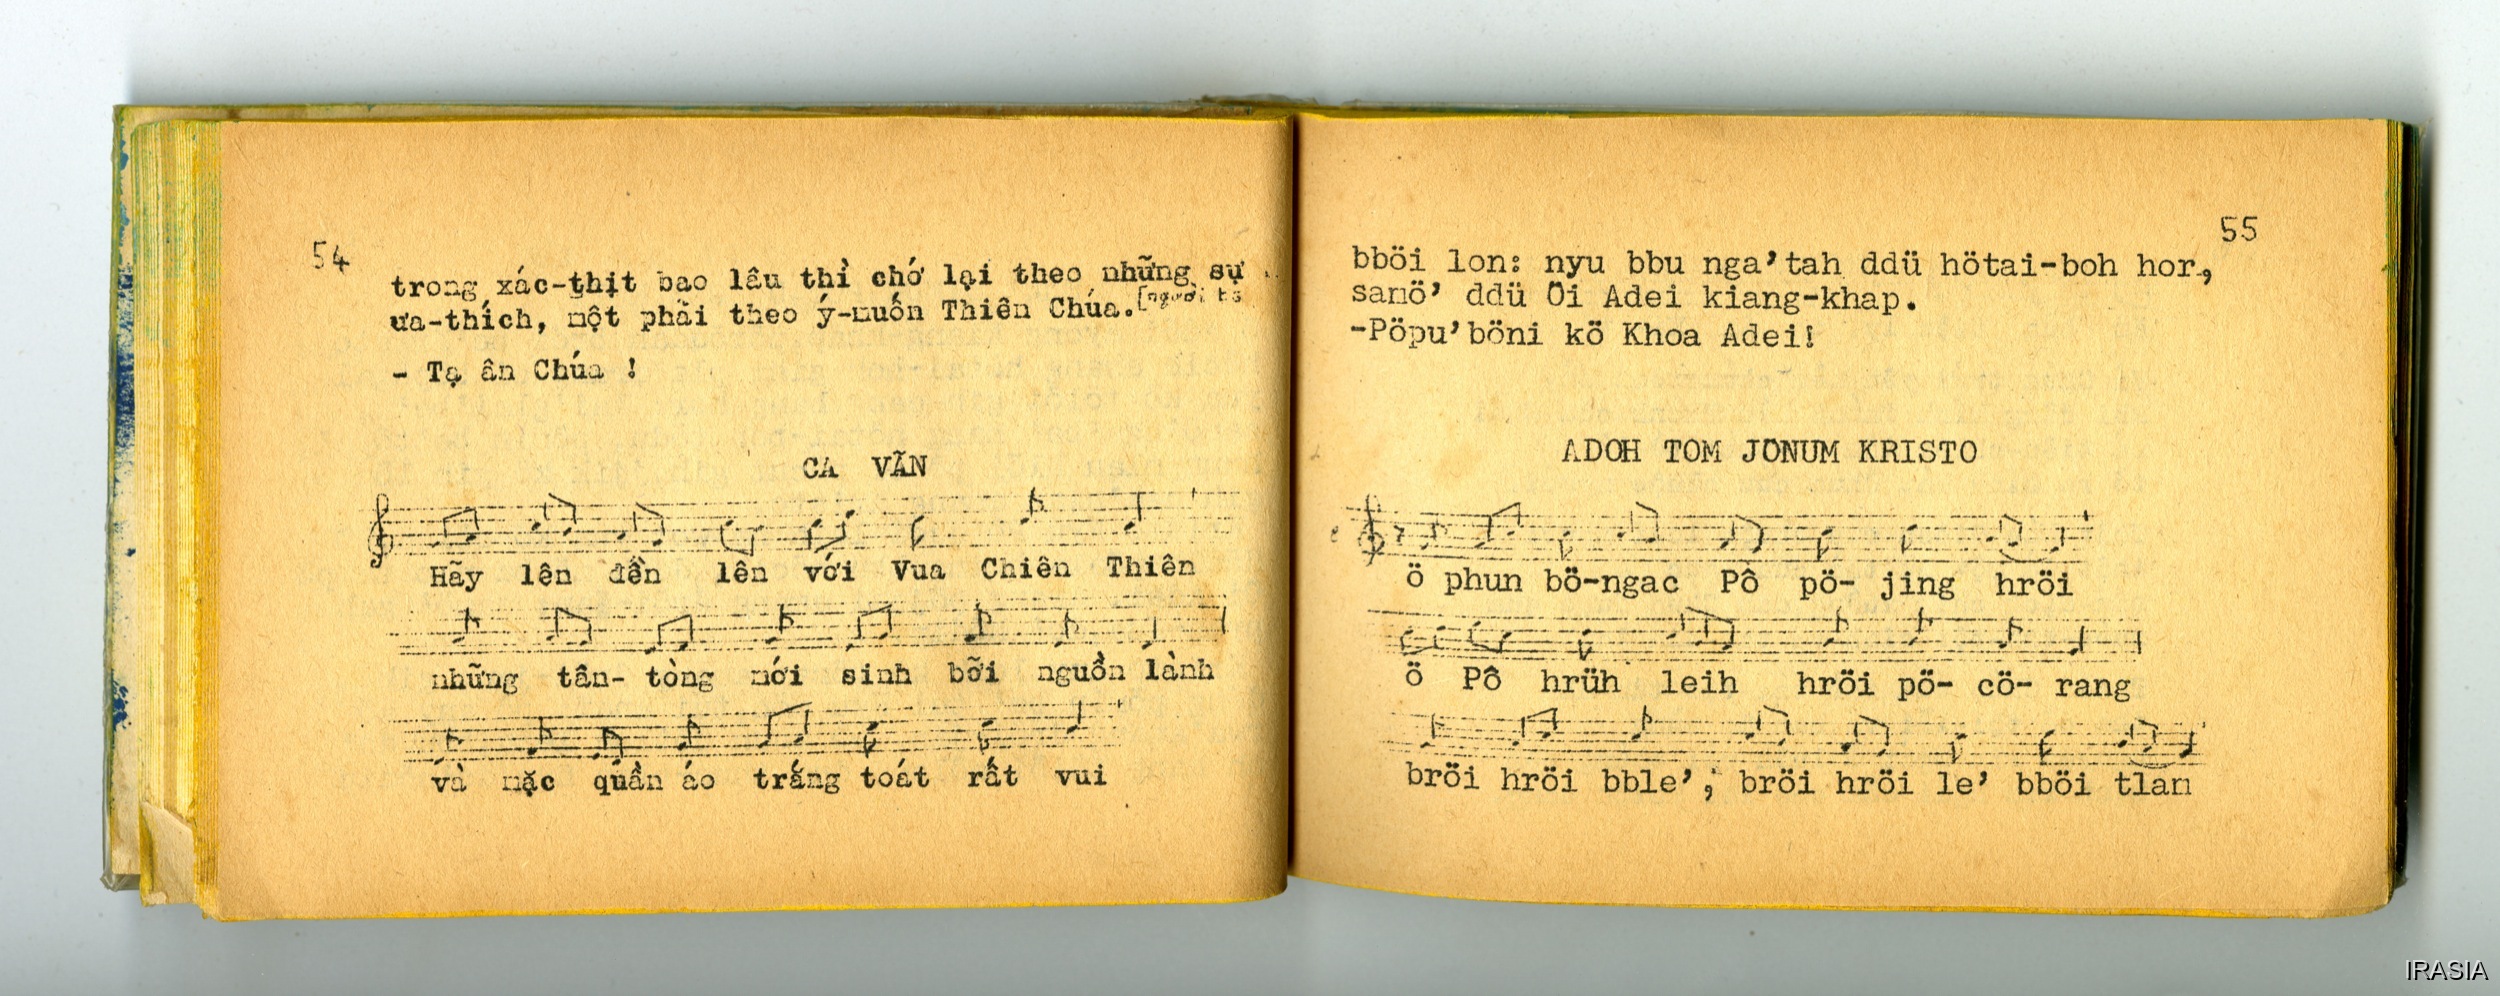 54
trong xác-thịt bao lâu thì chớ lại theo những sự
ưa-thích, một phải theo ý-muốn Thiên Chúa. [người ta
- Tạ ân Chúa !
CA VÃN
Hãy lên đền lên với Vua Chiên Thiên
những tân- tòng mới sinh bỡi nguồn lành
và mặc quần áo trắng toát rất vui
55
bböi lon: nyu bbu nga’tah ddü hötai-boh hor,
sanö’ ddü Öi Adei kiang-khap.
-Pöpu’böni kö Khoa Adei!
ADOH TOM JÖNUM KRISTO
ö phun bö-ngac Pô pö- jing hröi
ö Pô hrüh leih hröi pö- cö- rang
bröi hröi bble’; bröi hröi le’ bböi tlan
IRASIA